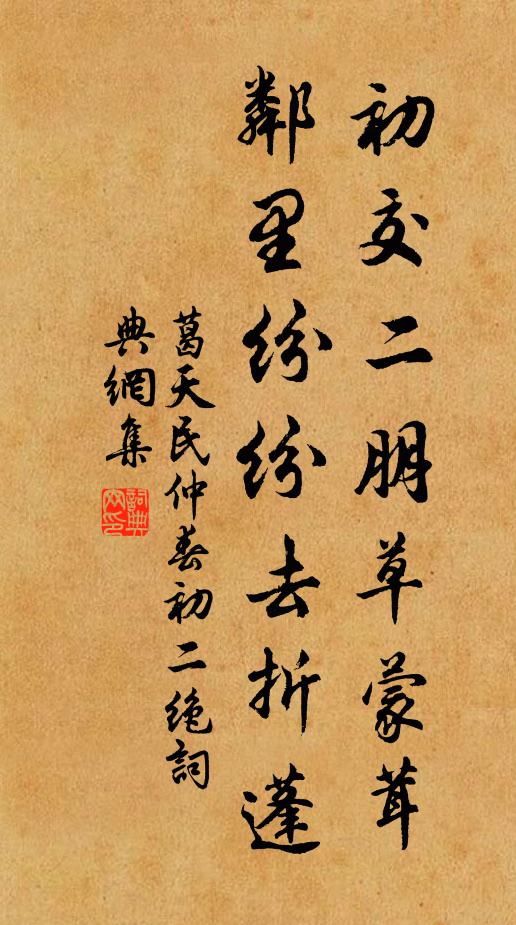 初交二朋草蒙茸
鄰里紛紛去折蓬
葛天民仲春初二絶詞
典網集
詞典
网印